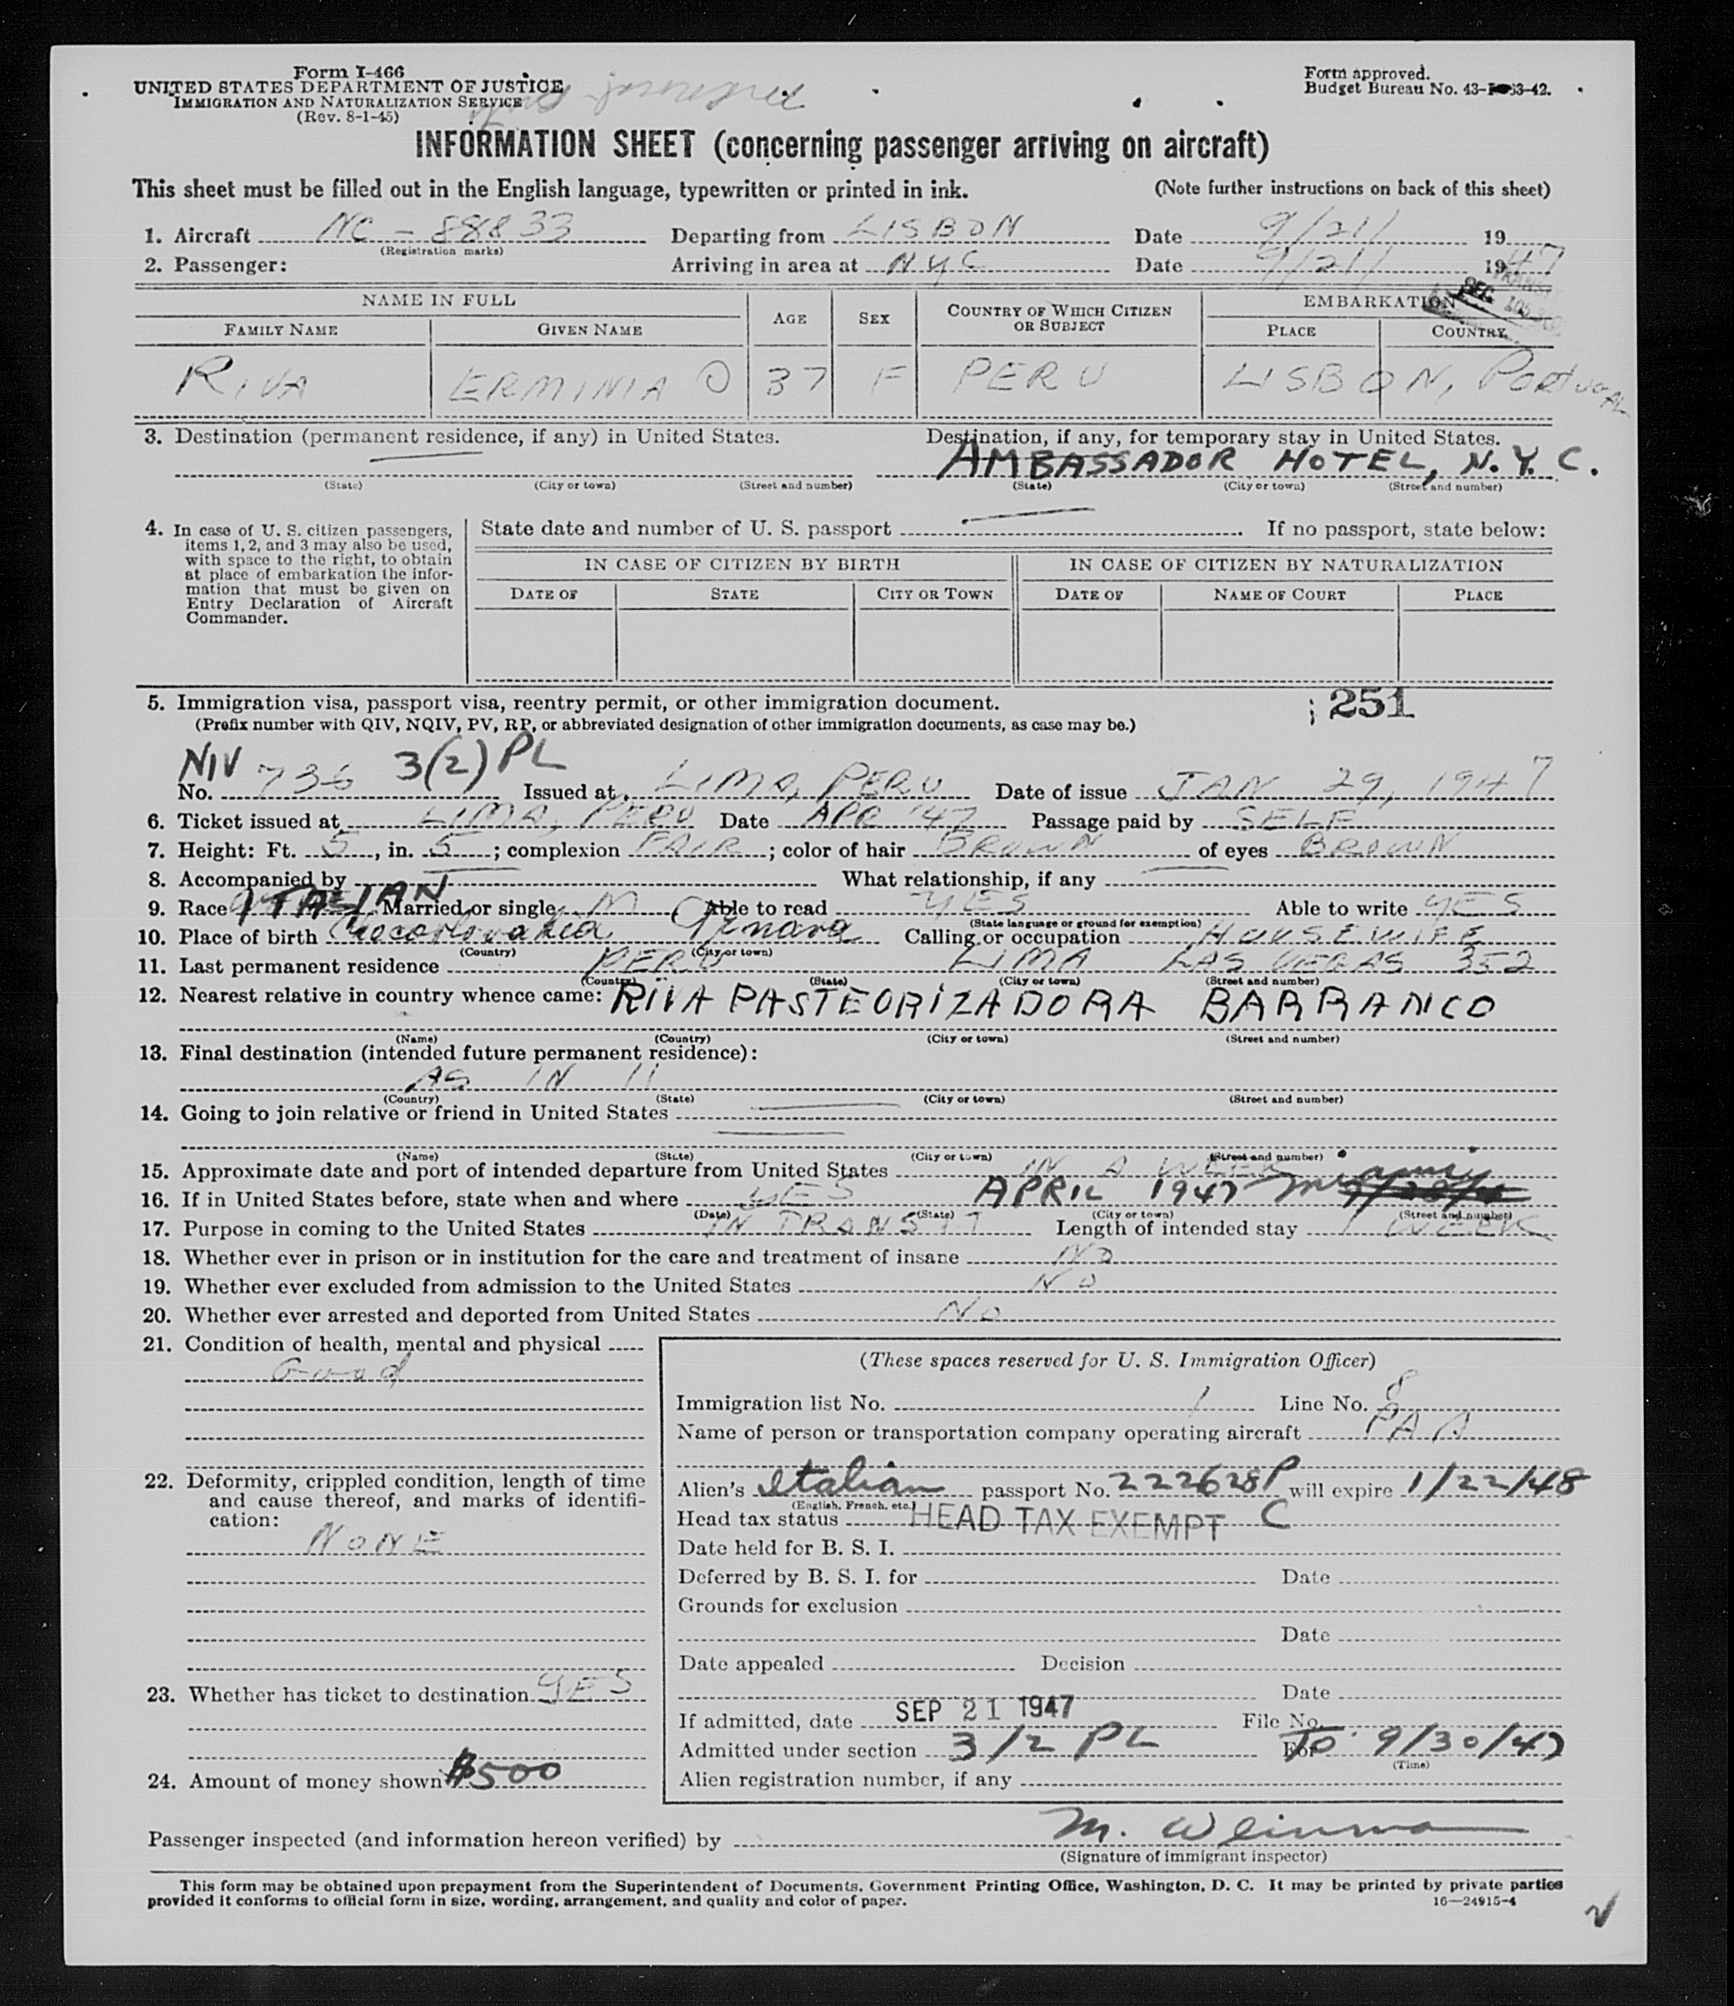 Form I-466
UNITED STATES DEPARTMENT OF JUSTICE
IMMIGRATION AND NATURALIZATION SERVICE
(Rev. 8-1-45)
Form approved.
Budget Bureau No. 43-
INFORMATION SHEET (concerning passenger arriving on aircraft)
This sheet must be filled out in the English language, typewritten or printed in ink. (Note further instructions on back of this sheet)
1. Aircraft NC-88833 Departing from LISBON Date 9/21/ 19
(Registration marks)
2. Passenger: Arriving in area at NYC Date 9/21/ 1947
NAME IN FULL AGE SEX COUNTRY OF WHICH CITIZEN OR SUBJECT EMBARKATION
FAMILY NAME GIVEN NAME PLACE COUNTRY
RIVA ERMINIA O 37 F PERU LISBON, PORTUGAL
3. Destination (permanent residence, if any) in United States. Destination, if any, for temporary stay in United States.
— AMBASSADOR HOTEL, N.Y.C.
(State) (City or town) (Street and number) (State) (City or town) (Street and number)
4. In case of U. S. citizen passengers, items 1, 2, and 3 may also be used, with space to the right, to obtain at place of embarkation the information that must be given on Entry Declaration of Aircraft Commander.
State date and number of U. S. passport — If no passport, state below:
IN CASE OF CITIZEN BY BIRTH IN CASE OF CITIZEN BY NATURALIZATION
DATE OF STATE CITY OR TOWN DATE OF NAME OF COURT PLACE
5. Immigration visa, passport visa, reentry permit, or other immigration document. 251
(Prefix number with QIV, NQIV, PV, RP, or abbreviated designation of other immigration documents, as case may be.)
NIV 3(2) PL
No. 736 Issued at LIMA, PERU Date of issue JAN 29, 1947
6. Ticket issued at LIMA, PERU Date APR '47 Passage paid by SELF
7. Height: Ft. 5, in. 5; complexion FAIR; color of hair BROWN of eyes BROWN
8. Accompanied by — What relationship, if any —
9. Race ITALIAN Married or single M Able to read YES Able to write YES
(State language or ground for exemption)
10. Place of birth Genova Calling or occupation HOUSEWIFE
(Country) (City or town)
11. Last permanent residence PERU LIMA LAS VEGAS 352
(Country) (State) (City or town) (Street and number)
12. Nearest relative in country whence came: RIVA PASTEORIZADORA BARRANCO
(Name) (Country) (City or town) (Street and number)
13. Final destination (intended future permanent residence):
AS IN 11
(Country) (State) (City or town) (Street and number)
14. Going to join relative or friend in United States —
(Name) (State) (City or town) (Street and number)
15. Approximate date and port of intended departure from United States IN A WEEK
16. If in United States before, state when and where YES APRIL 1947 Miami
(Date) (State) (City or town) (Street and number)
17. Purpose in coming to the United States IN TRANSIT Length of intended stay 1 WEEK
18. Whether ever in prison or in institution for the care and treatment of insane NO
19. Whether ever excluded from admission to the United States NO
20. Whether ever arrested and deported from United States NO
21. Condition of health, mental and physical
Good
22. Deformity, crippled condition, length of time and cause thereof, and marks of identification:
NONE
23. Whether has ticket to destination YES
24. Amount of money shown $500
(These spaces reserved for U. S. Immigration Officer)
Immigration list No. 1 Line No. 8
Name of person or transportation company operating aircraft PAA
Alien's Italian passport No. 222628P will expire 1/22/48
(English, French, etc.)
Head tax status HEAD TAX EXEMPT C
Date held for B. S. I.
Deferred by B. S. I. for Date
Grounds for exclusion
Date
Date appealed Decision
Date
If admitted, date SEP 21 1947 File No.
Admitted under section 3/2 PL To 9/30/47
(Time)
Alien registration number, if any
Passenger inspected (and information hereon verified) by M. Weinman
(Signature of immigrant inspector)
This form may be obtained upon prepayment from the Superintendent of Documents, Government Printing Office, Washington, D. C. It may be printed by private parties
provided it conforms to official form in size, wording, arrangement, and quality and color of paper. 16—24915-4